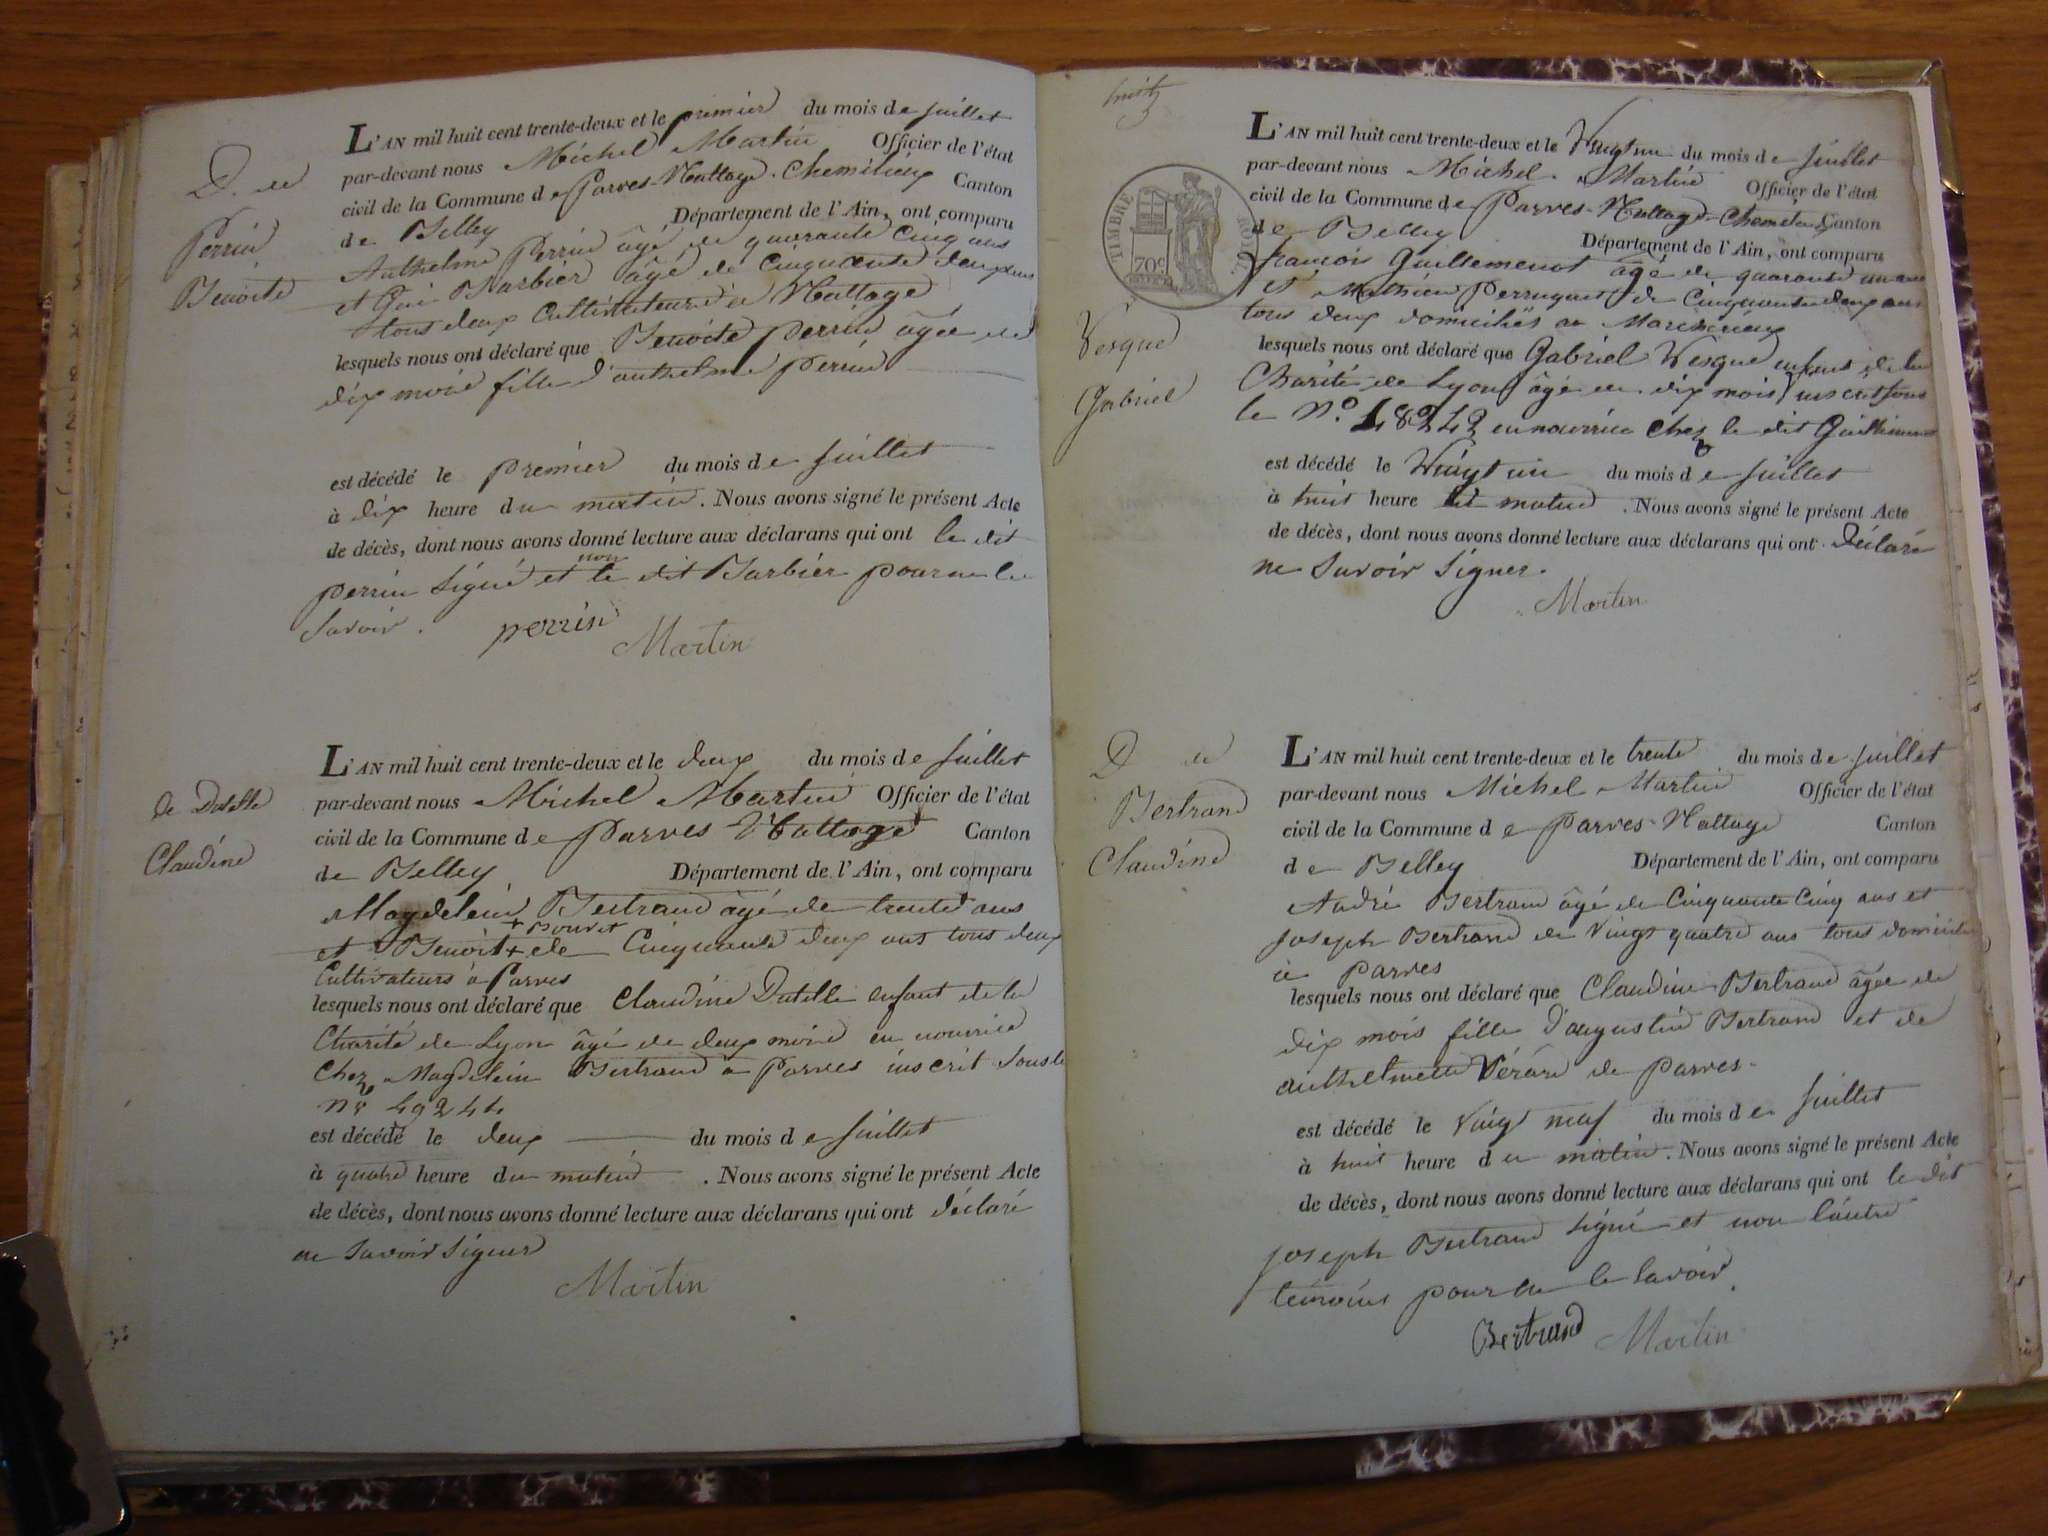 D. de
Perrin
Benoite
L'AN mil huit cent trente-deux et le premier du mois de juillet
par-devant nous Michel Martin Officier de l'état
civil de la Commune de Parves-Nattage-Chemilieux Canton
de Belley Département de l'Ain, ont comparu
Anthelme Perrin âgé de quarante cinq ans
et Gui Barbier âgé de cinquante deux ans
tous deux Cultivateurs à Nattage
lesquels nous ont déclaré que Benoite perrin âgée de
dix mois fille d'anthelme Perrin
est décédé le premier du mois de juillet
à dix heure du matin. Nous avons signé le présent Acte
de décès, dont nous avons donné lecture aux déclarans qui ont le dit
perrin signé et non le dit Barbier pour ne le
savoir. perrin
Martin
de Dutelle
Claudine
L'AN mil huit cent trente-deux et le deux du mois de juillet
par-devant nous Michel Martin Officier de l'état
civil de la Commune de Parves Nattage Canton
de Belley Département de l'Ain, ont comparu
Magdelein Bertrand âgé de trente ans
+ pouret
et Benoit + de Cinquante deux ans tous deux
Cultivateurs à Parves
lesquels nous ont déclaré que Claudine Dutelle enfant de la
Charité de Lyon âgé de deux mois en nourrice
Chez Magdelein Bertrand à Parves inscrit sous le
n° 49244
est décédé le deux du mois de juillet
à quatre heure du matin . Nous avons signé le présent Acte
de décès, dont nous avons donné lecture aux déclarans qui ont déclaré
ne savoir signer
Martin
huit
TIMBRE ROYAL
70c
Vésque
Gabriel
L'AN mil huit cent trente-deux et le Vingt un du mois de juillet
par-devant nous Michel Martin Officier de l'état
civil de la Commune de Parves-Nattage-Chemilieux Canton
de Belley Département de l'Ain, ont comparu
françois Guillemenot âgé de quarante un ans
et Mathieu Perruquet de Cinquante deux ans
tous deux domiciliés a
lesquels nous ont déclaré que Gabriel Vesque enfant de la
Charité de Lyon âgé de dix mois inscrit sous
le N° 48242 en nourrice chez le dit
est décédé le Vingt un du mois de juillet
à huit heure du matin . Nous avons signé le présent Acte
de décès, dont nous avons donné lecture aux déclarans qui ont déclaré
ne Savoir Signer.
Martin
D de
Bertrand
Claudine
L'AN mil huit cent trente-deux et le trente du mois de juillet
par-devant nous Michel Martin Officier de l'état
civil de la Commune de Parves-Nattage Canton
de Belley Département de l'Ain, ont comparu
André Bertrand âgé de Cinquante Cinq ans et
joseph Bertrand de Vingt quatre ans tous domiciliés
à parves
lesquels nous ont déclaré que Claudine Bertrand âgée de
dix mois fille d'augustin Bertrand et de
anthelmette Vérard de parves.
est décédé le Vingt neuf du mois de juillet
à huit heure du matin. Nous avons signé le présent Acte
de décès, dont nous avons donné lecture aux déclarans qui ont le dit
joseph Bertrand signé et non l'autre
témoins pour ne le savoir.
Bertrand Martin